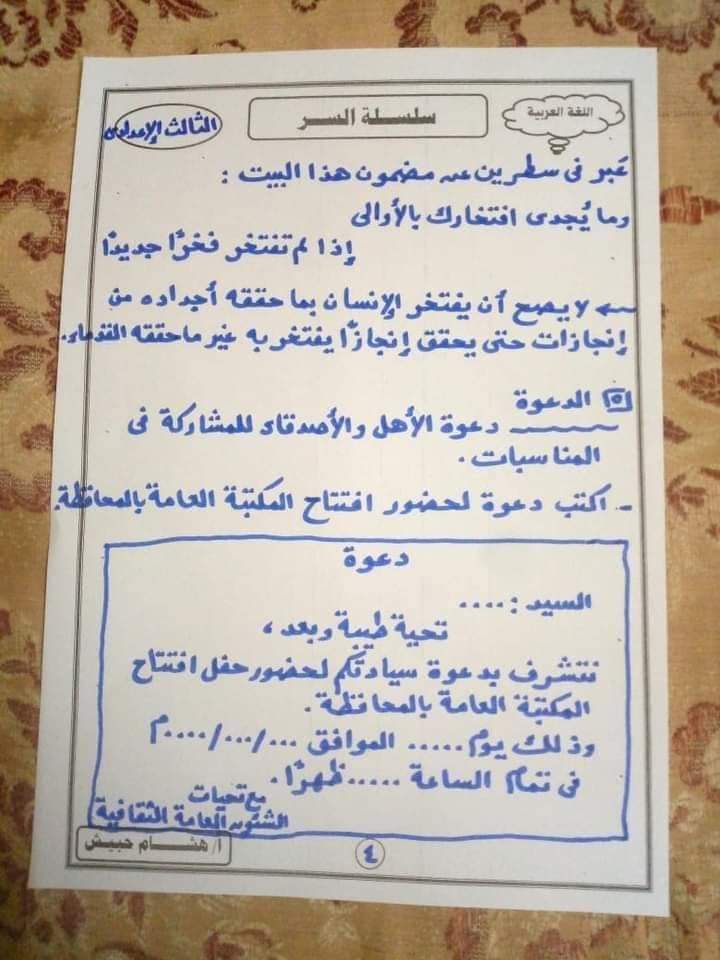 اللغة العربية
سلسلة السر
الثالث الإعدادى
عَبر فى سطرين عن مضمون هذا البيت :
وما يُجدى افتخارك بالأوالى
إذا لم تفتخر فخرًا جديدًا
← لا يصح أن يفتخر الإنسان بما حققه أجداده من
إنجازات حتى يحقق إنجازًا يفتخر به غير ما حققه القدماء.
٥ الدعوة
دعوة الأهل والأصدقاء للمشاركة فى
المناسبات .
- اكتب دعوة لحضور افتتاح المكتبة العامة بالمحافظة.
دعوة
السيد : ....
تحية طيبة وبعد ،
نتشرف بدعوة سيادتكم لحضور حفل افتتاح
المكتبة العامة بالمحافظة .
وذلك يوم ..... الموافق .../.../.... م
فى تمام الساعة ..... ظهرًا .
مع تحيات
الشئون العامة الثقافية
أ/ هشام حبيش
٤